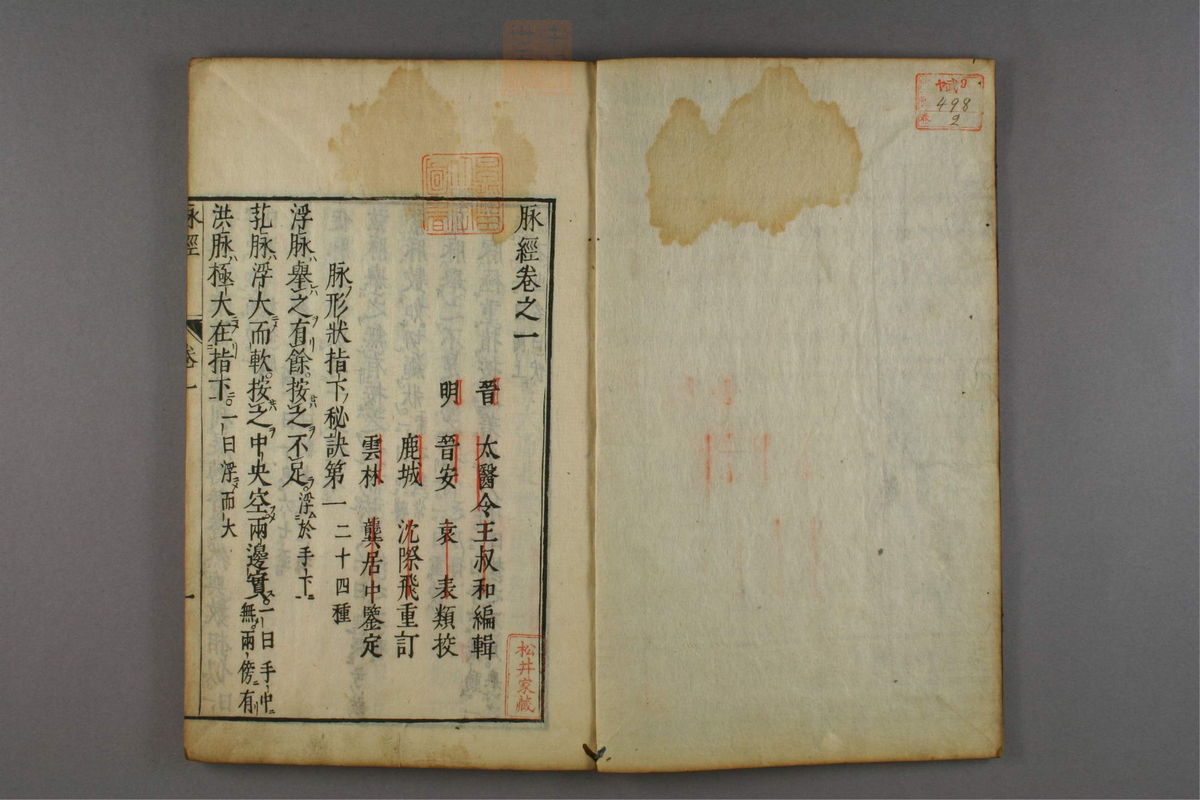 498
2
脉經卷之一
晉 太醫令王叔和編輯
明 晉安 袁 表類挍
鹿城 沈際飛重訂
雲林 龔居中鑒定
脉形狀指下秘訣第一 二十四種
浮脉舉之有餘按之不足 浮於手下
芤脉浮大而軟按之中央空兩邊實 一曰手中無兩傍有
洪脉極大在指下 一曰浮而大
脉經
卷一
一
松井家藏